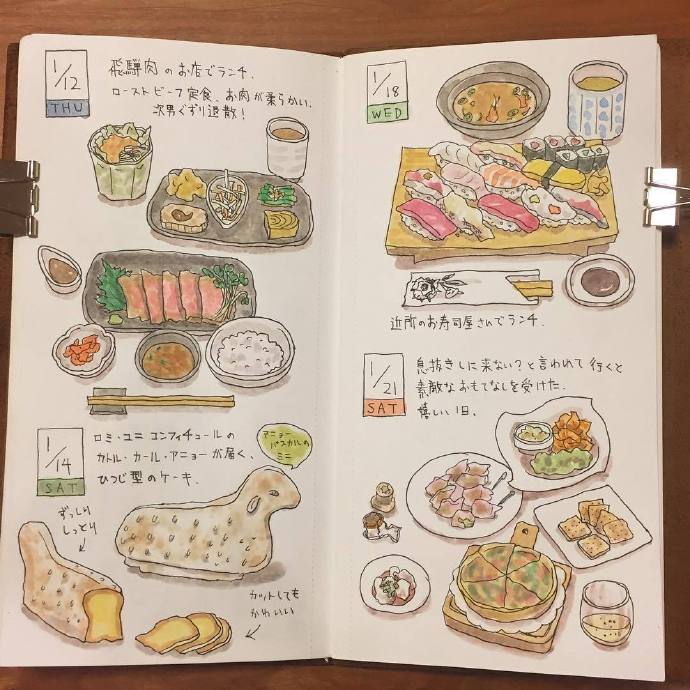 1/12
THU
飛騨肉のお店でランチ、
ローストビーフ定食、お肉が柔らかい、
次男ぐずり退散！
1/14
SAT
ロミ・ユニ コンフィチュールの
カトル・カール・アニョーが届く、
ひつじ型のケーキ.
アニョー
パスカルの
ミニ
ずっしり
しっとり
カットしても
かわいい
1/18
WED
近所のお寿司屋さんでランチ.
1/21
SAT
息抜きしに来ない？と言われて行くと
素敵なおもてなしを受けた.
嬉しい1日、